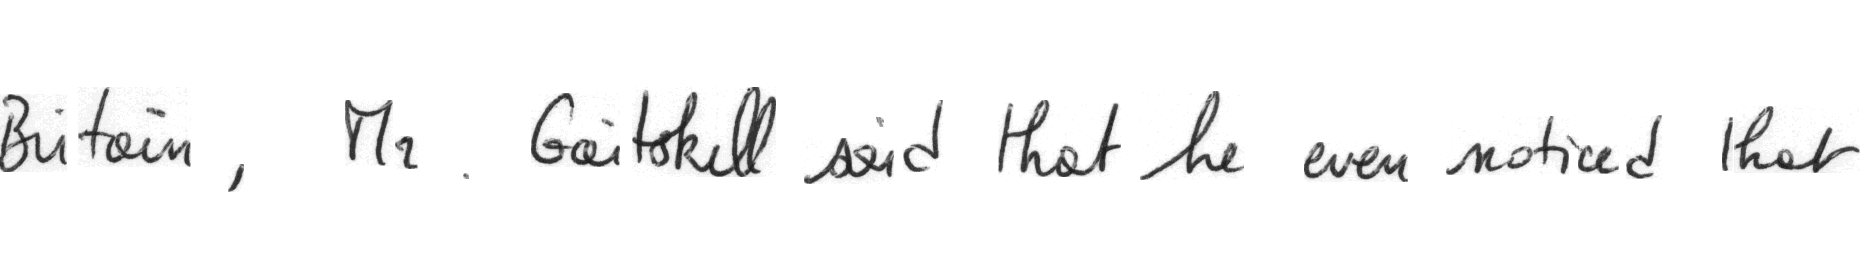 Britain, Mr. Gaitskell said that he even noticed that